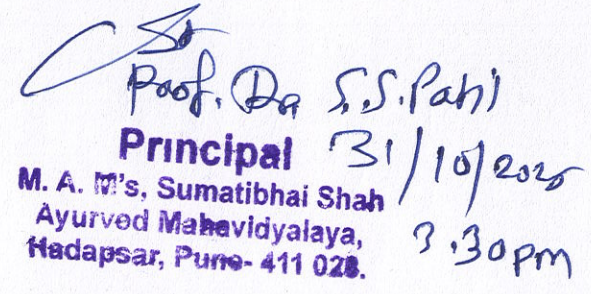 Prof. Dr. S.S. Patil
Principal
31/10/2025
M. A. M's, Sumatibhai Shah
Ayurved Mahavidyalaya,
Hadapsar, Pune- 411 028.
3.30pm